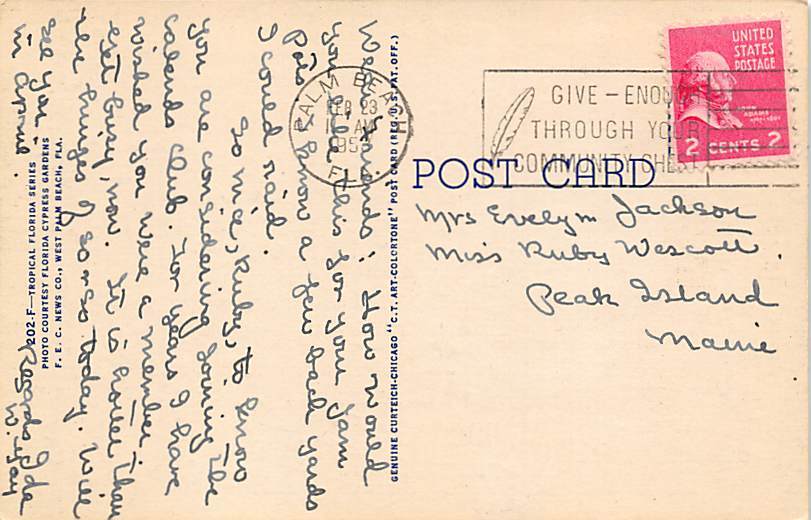 Well, Friends: How would
you like this for your Jam
Pots. I know a few back yards
I could raid.
So nice, Ruby, to know
you are considering joining the
Calends Club. For years I have
wished you were a member.
Get busy, now. It is hotter than
the hinges of so & so today. Will
see you
in April.
Regards Ide
W. Gay
202-F—TROPICAL FLORIDA SERIES
PHOTO COURTESY FLORIDA CYPRESS GARDENS
F. E. C. NEWS CO., WEST PALM BEACH, FLA.
GENUINE CURTEICH-CHICAGO "C.T. ART-COLORTONE" POST CARD (REG. U. S. PAT. OFF.)
PALM BEACH
FEB 23
AM
FLA.
GIVE-ENOUGH
THROUGH YOUR
COMMUNITY CHEST
UNITED
STATES
POSTAGE
JOHN
ADAMS
2 CENTS 2
POST CARD
Mrs Evelyn Jackson
Miss Ruby Wescott.
Peak Island
Maine